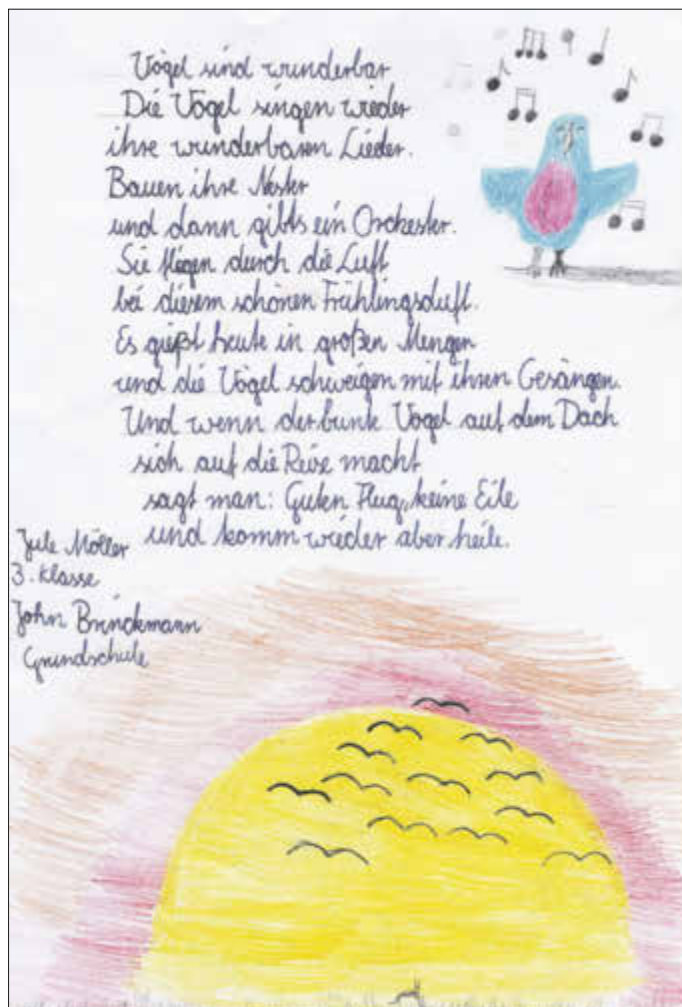 Vögel sind wunderbar
Die Vögel singen wieder
ihre wunderbaren Lieder.
Bauen ihre Nester
und dann gibts ein Orchester.
Sie fliegen durch die Luft
bei diesem schönen Frühlingsduft.
Es gießt heute in großen Mengen
und die Vögel schweigen mit ihren Gesängen.
Und wenn der bunte Vogel auf dem Dach
sich auf die Reise macht
sagt man: Guten Flug, keine Eile
und komm wieder aber heile.
Jule Möller
3. Klasse
John Brinckmann
Grundschule